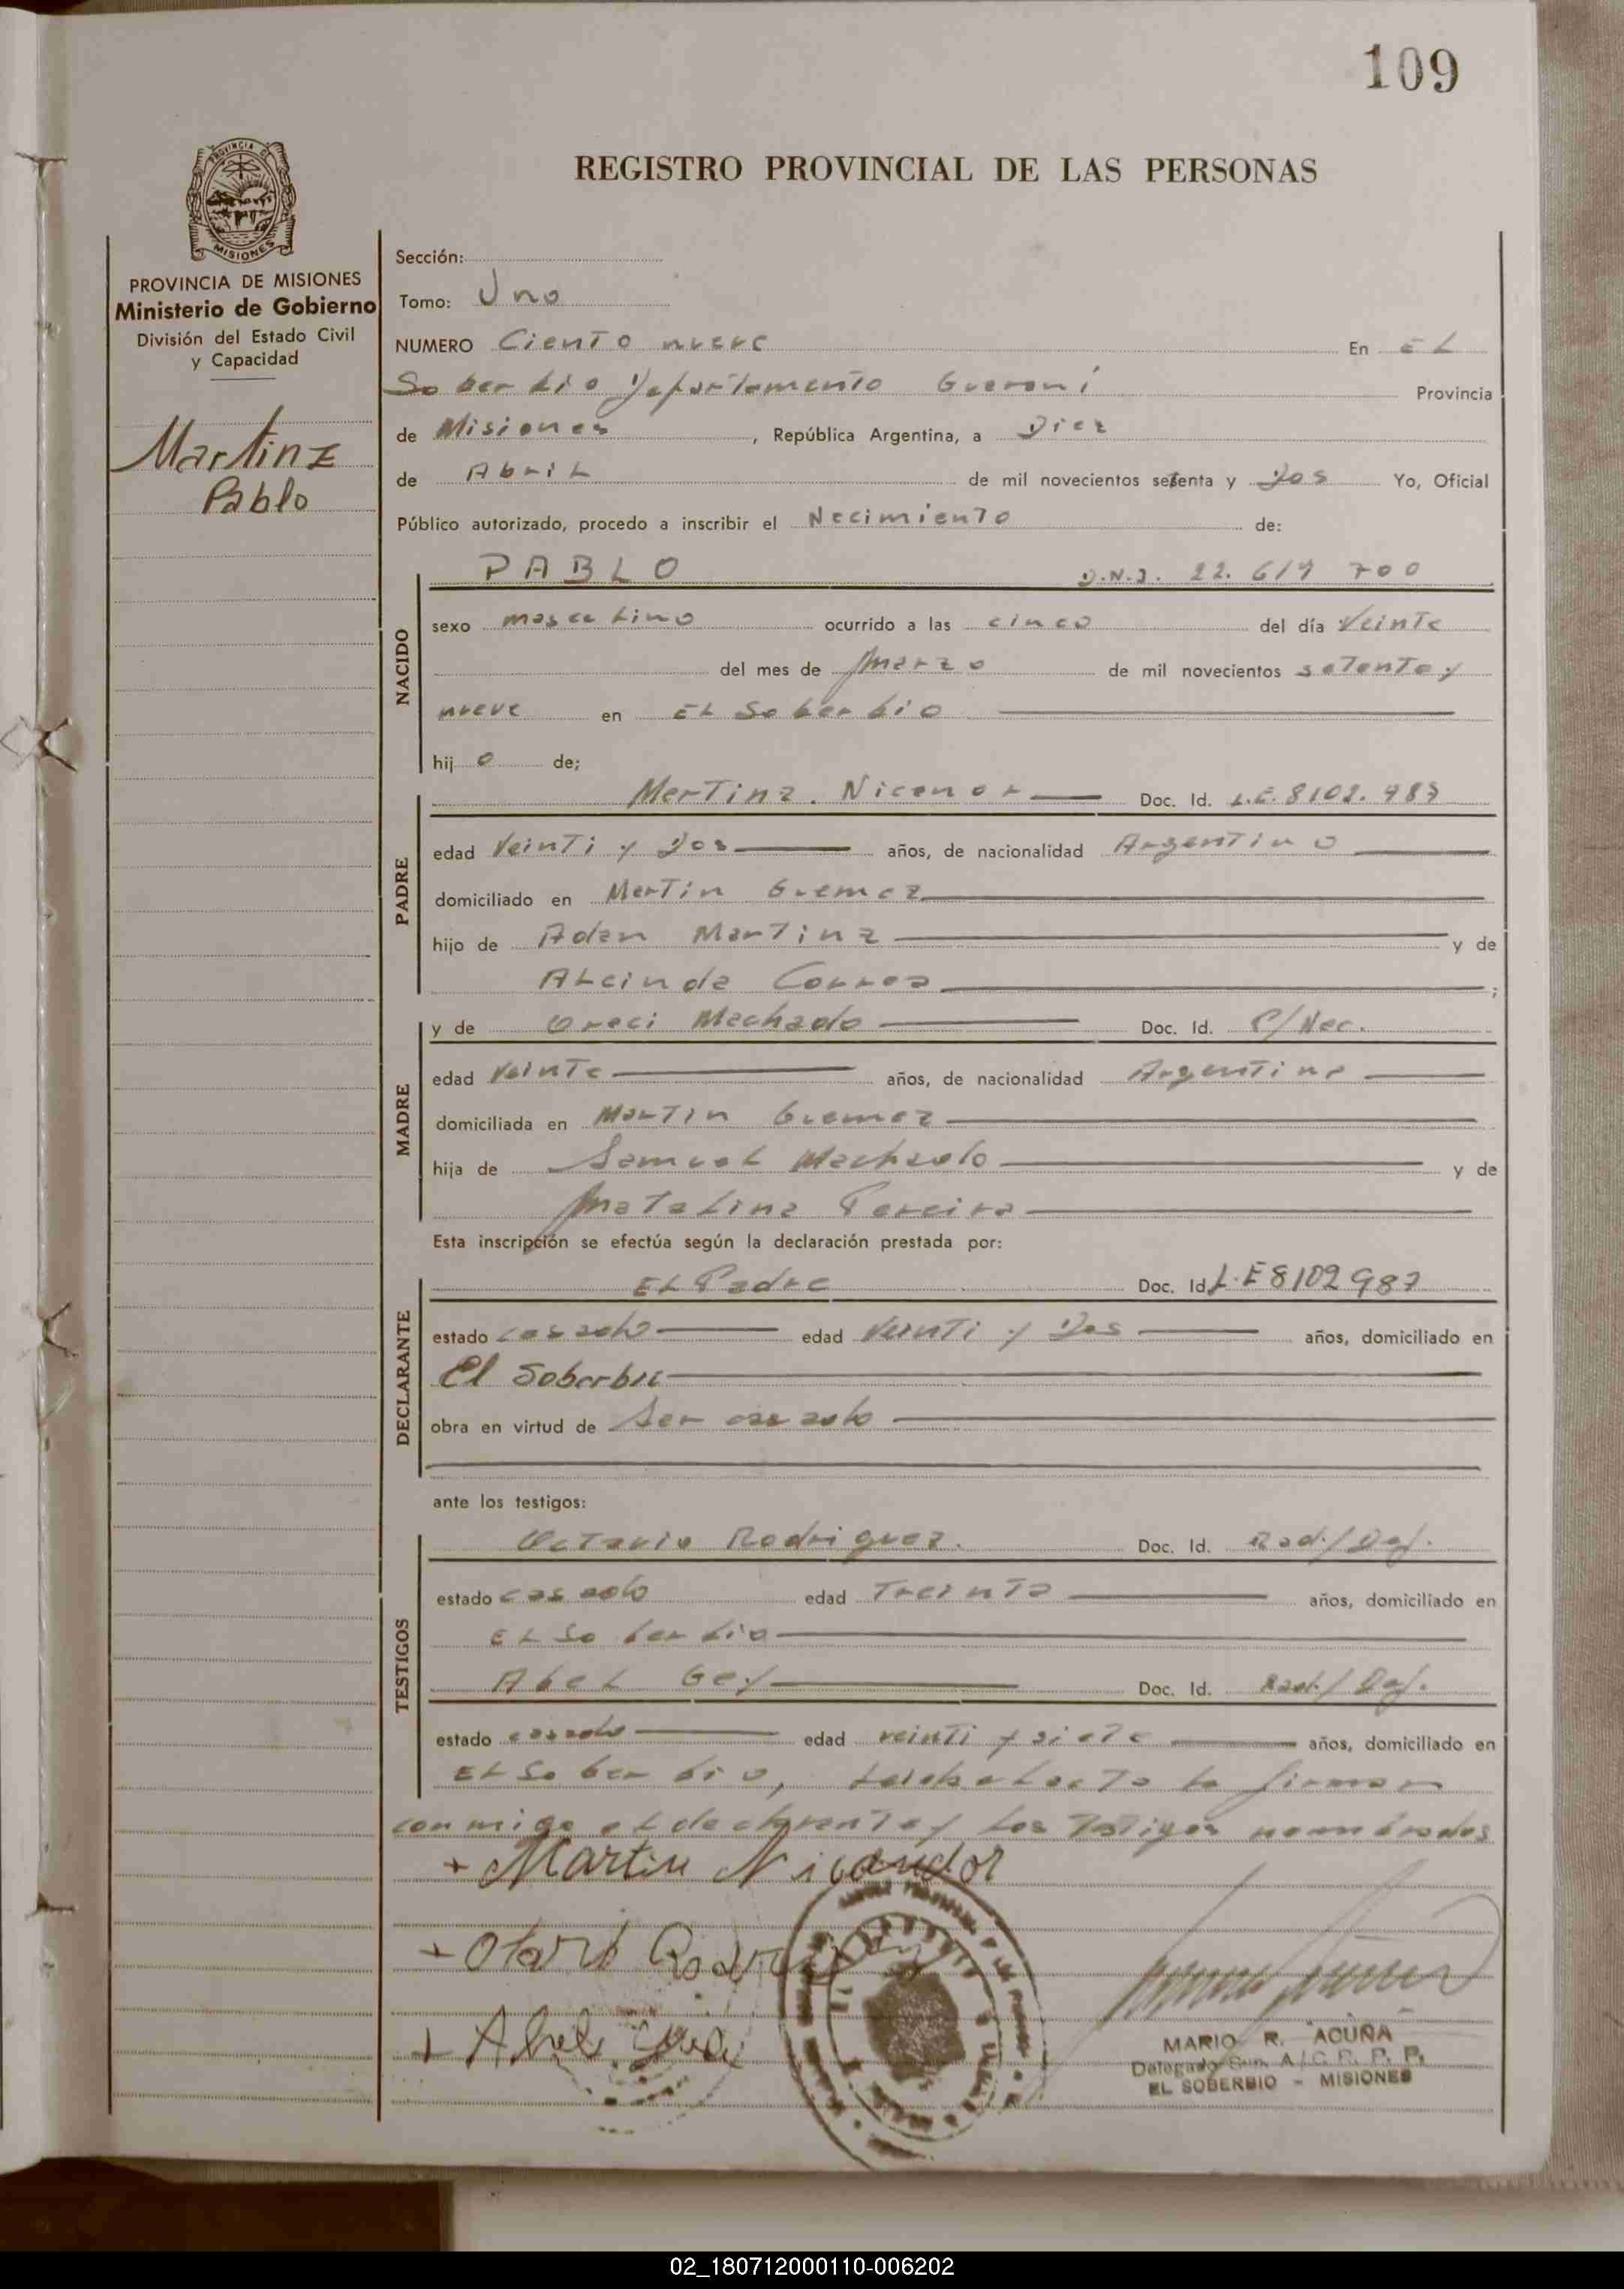 109
REGISTRO PROVINCIAL DE LAS PERSONAS
PROVINCIA DE
MISIONES
PROVINCIA DE MISIONES
Ministerio de Gobierno
División del Estado Civil
y Capacidad
Martinz
Pablo
Sección:
Tomo: Uno
NUMERO Ciento nueve En EL
Soberbio Departamento Guaraní Provincia
de Misiones, República Argentina, a Diez
de Abril de mil novecientos setenta y Dos Yo, Oficial
Público autorizado, procedo a inscribir el Nacimiento de:
NACIDO
PABLO D.N.I. 22.619 700
sexo masculino ocurrido a las cinco del día Veinte
del mes de Marzo de mil novecientos setenta y
nueve en EL Soberbio
hij o de;
PADRE
Martinz. Nicanor Doc. Id. L.E. 8102.987
edad Veinti y Dos años, de nacionalidad Argentino
domiciliado en Martin Guemez
hijo de Adan Martinz y de
Alcinda Correa;
MADRE
y de Oreci Machado Doc. Id. C/Nac.
edad Veinte años, de nacionalidad Argentina
domiciliada en Martin Guemez
hija de Samuel Machado y de
Matalina Pereira
Esta inscripción se efectúa según la declaración prestada por:
DECLARANTE
EL Padre Doc. Id. L.E 8102987
estado casado edad Veinti y Dos años, domiciliado en
El Soberbio
obra en virtud de Ser casado
ante los testigos:
TESTIGOS
Octavio Rodriguez. Doc. Id.
estado casado edad Treinta años, domiciliado en
EL Soberbio
Abel Doc. Id.
estado casado edad veinti y siete años, domiciliado en
EL Soberbio, Leida el acta la firman
conmigo el declarante y los Testigos nombrados
+ Martin Nicandor
+ Otavio
+ Abel
MARIO R. ACUÑA
Delegado A/C R. P. P.
EL SOBERBIO - MISIONES
02_180712000110-006202